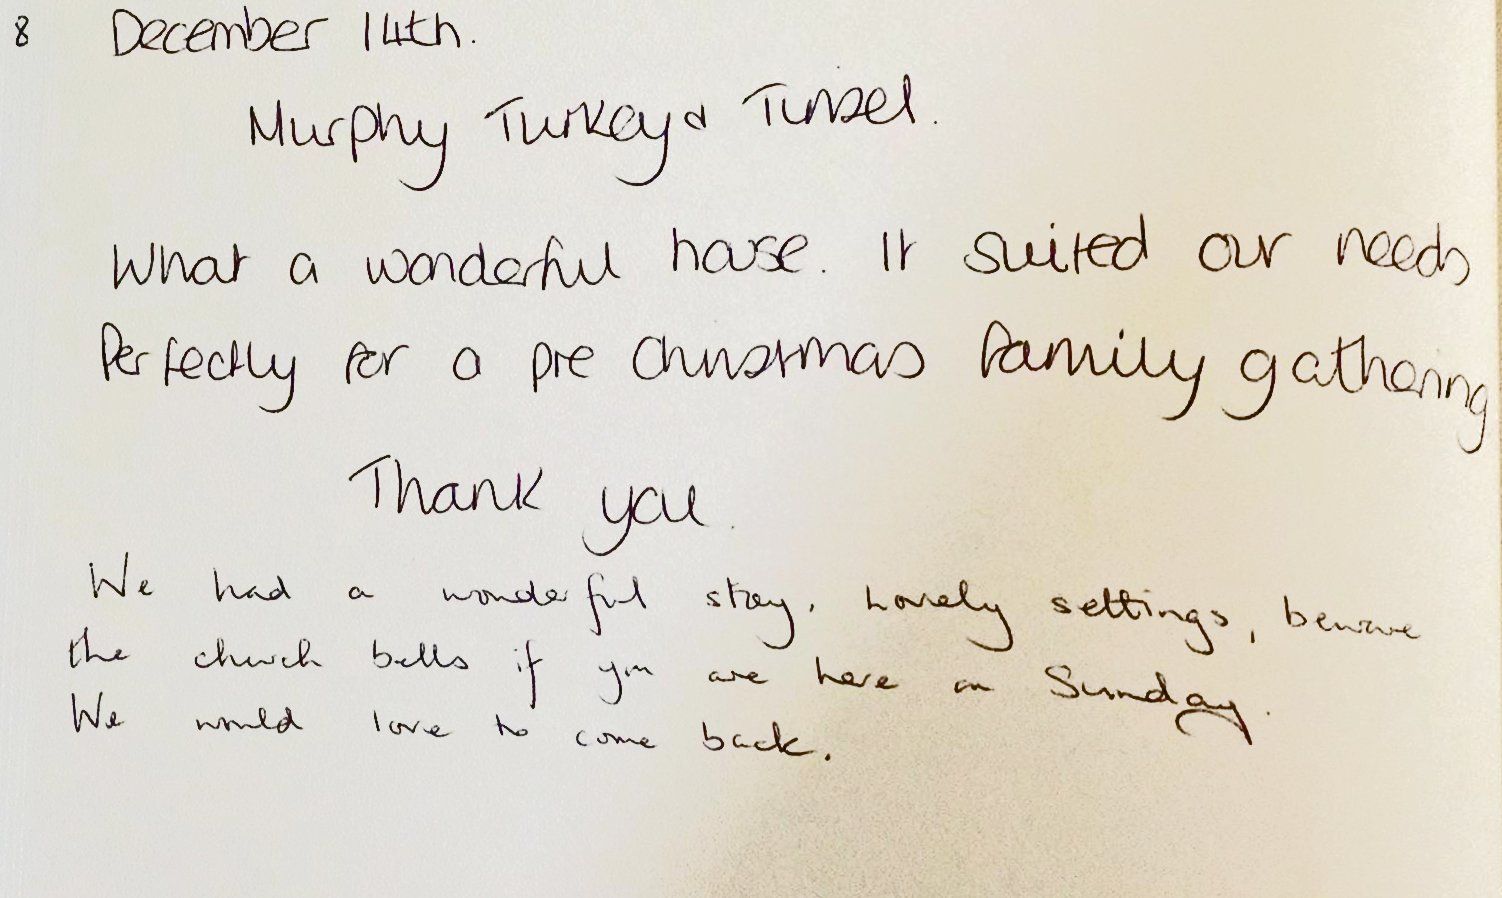 8 December 14th.
Murphy Turkey & Tinsel.
What a wonderful house. It suited our needs
Perfectly for a pre Christmas family gathering
Thank you.
We had a wonderful stay. Lovely settings, beware
the church bells if you are here on Sunday.
We would love to come back.